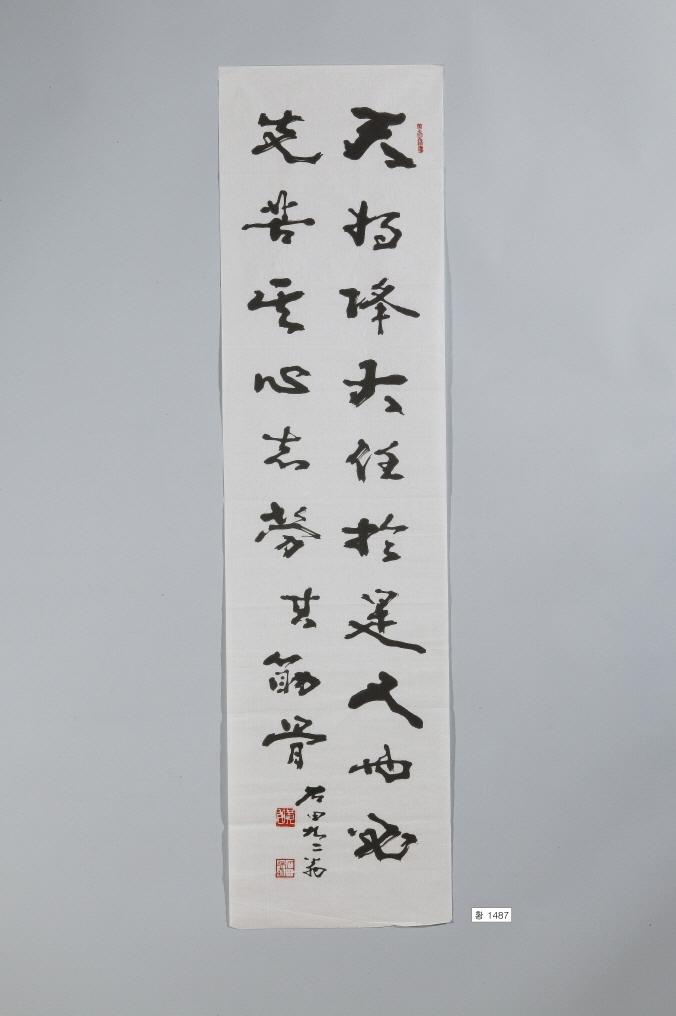 天將降大任於是人也必
先苦其心志勞其筋骨
石田九二翁
황 1487